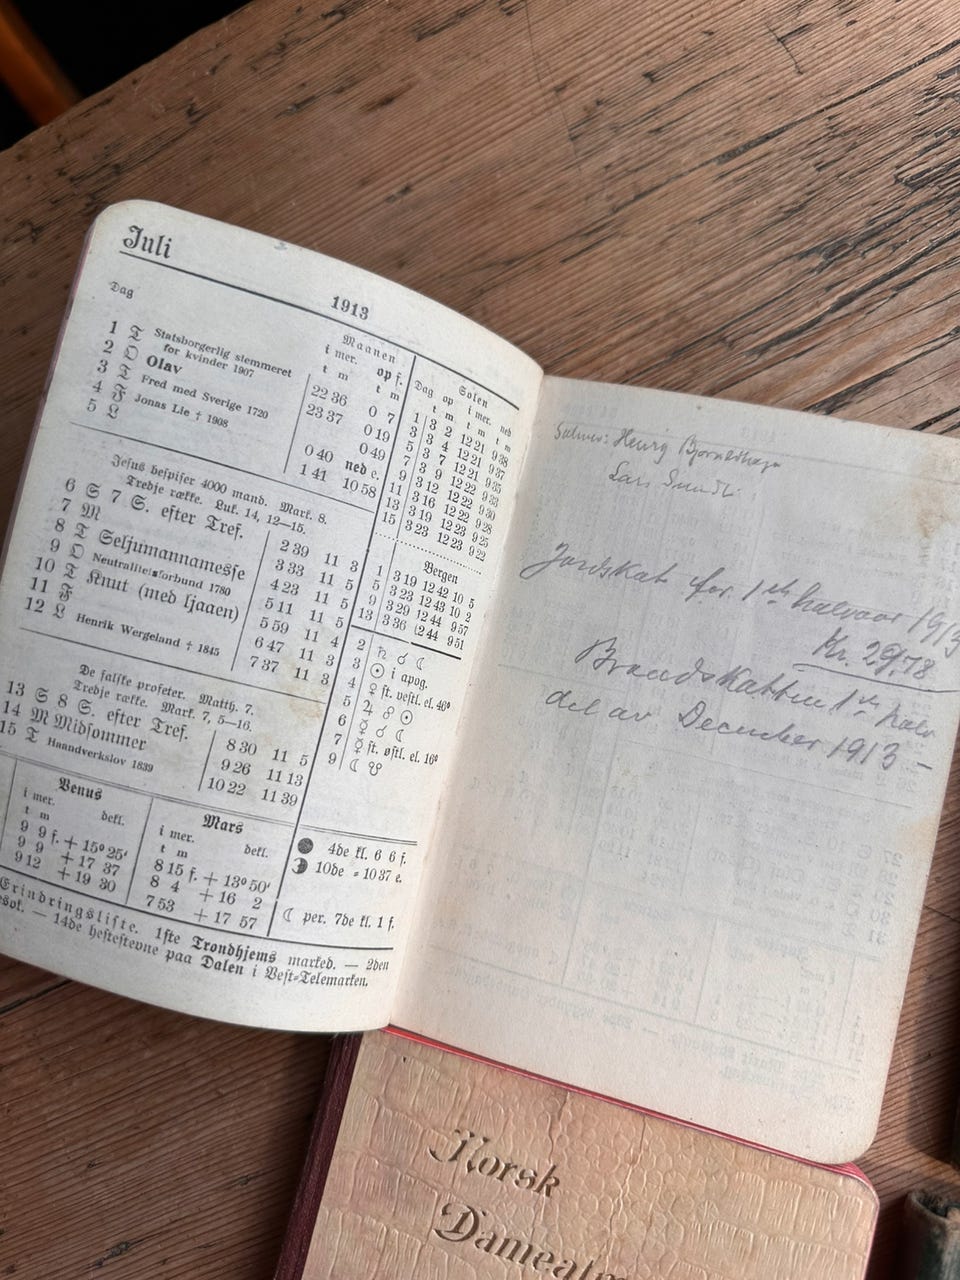 Juli
1913
Dag
Maanen
i mer. op f.
t m t m
1 T Statsborgerlig stemmeret 22 36 0 7
for kvinder 1907
2 O Olav 23 37 0 19
3 T Fred med Sverige 1720 0 49
4 F Jonas Lie † 1908 0 40 ned e.
5 L 1 41 10 58
Jesus bespiser 4000 mand. Mark. 8.
Tredje række. Luk. 14, 12—15.
6 S 7 S. efter Tref. 2 39 11 3
7 M 3 33 11 5
8 T Seljumannamesse 4 23 11 5
9 O Neutralitetsforbund 1780 5 11 11 5
10 T Knut (med ljaaen) 5 59 11 4
11 F 6 47 11 3
12 L Henrik Wergeland † 1845 7 37 11 3
De falske profeter. Matth. 7.
Tredje række. Mark. 7, 5—16.
13 S 8 S. efter Tref. 8 30 11 5
14 M Midsommer 9 26 11 13
15 T Haandverkslov 1839 10 22 11 39
Venus
i mer. dekl.
t m
9 9 f. + 15° 25'
9 9 + 17 37
9 12 + 19 30
Mars
i mer. dekl.
t m
8 15 f. + 13° 50'
8 4 + 16 2
7 53 + 17 57
Solen
Dag op i mer. ned
t m t m t m
1 3 2 12 21 9 38
3 3 4 12 21 9 37
5 3 7 12 21 9 35
7 3 9 12 22 9 33
9 3 12 12 22 9 30
11 3 16 12 22 9 28
13 3 19 12 23 9 25
15 3 23 12 23 9 22
Bergen
1 3 19 12 42 10 5
5 3 23 12 43 10 2
9 3 29 12 44 9 57
13 3 36 12 44 9 51
2 ♄ ☌ ☾
3 ☉ i apog.
4 ♀ st. vestl. el. 46°
5 ♃ ☍ ☉
6 ☿ ☌ ☾
7 ☿ st. østl. el. 16°
9 ☾ ☋
4de kl. 6 6 f.
10de = 10 37 e.
☾ per. 7de kl. 1 f.
Erindringsliste. 1ste Trondhjems marked. — 2den
— 14de hestestevne paa Dalen i Vest-Telemarken.
Henrig
Lars
Jordskat for 1ste halvaar 1913
Kr. 29,78
Brandskatten 1ste halv
del av December 1913 —
Norsk